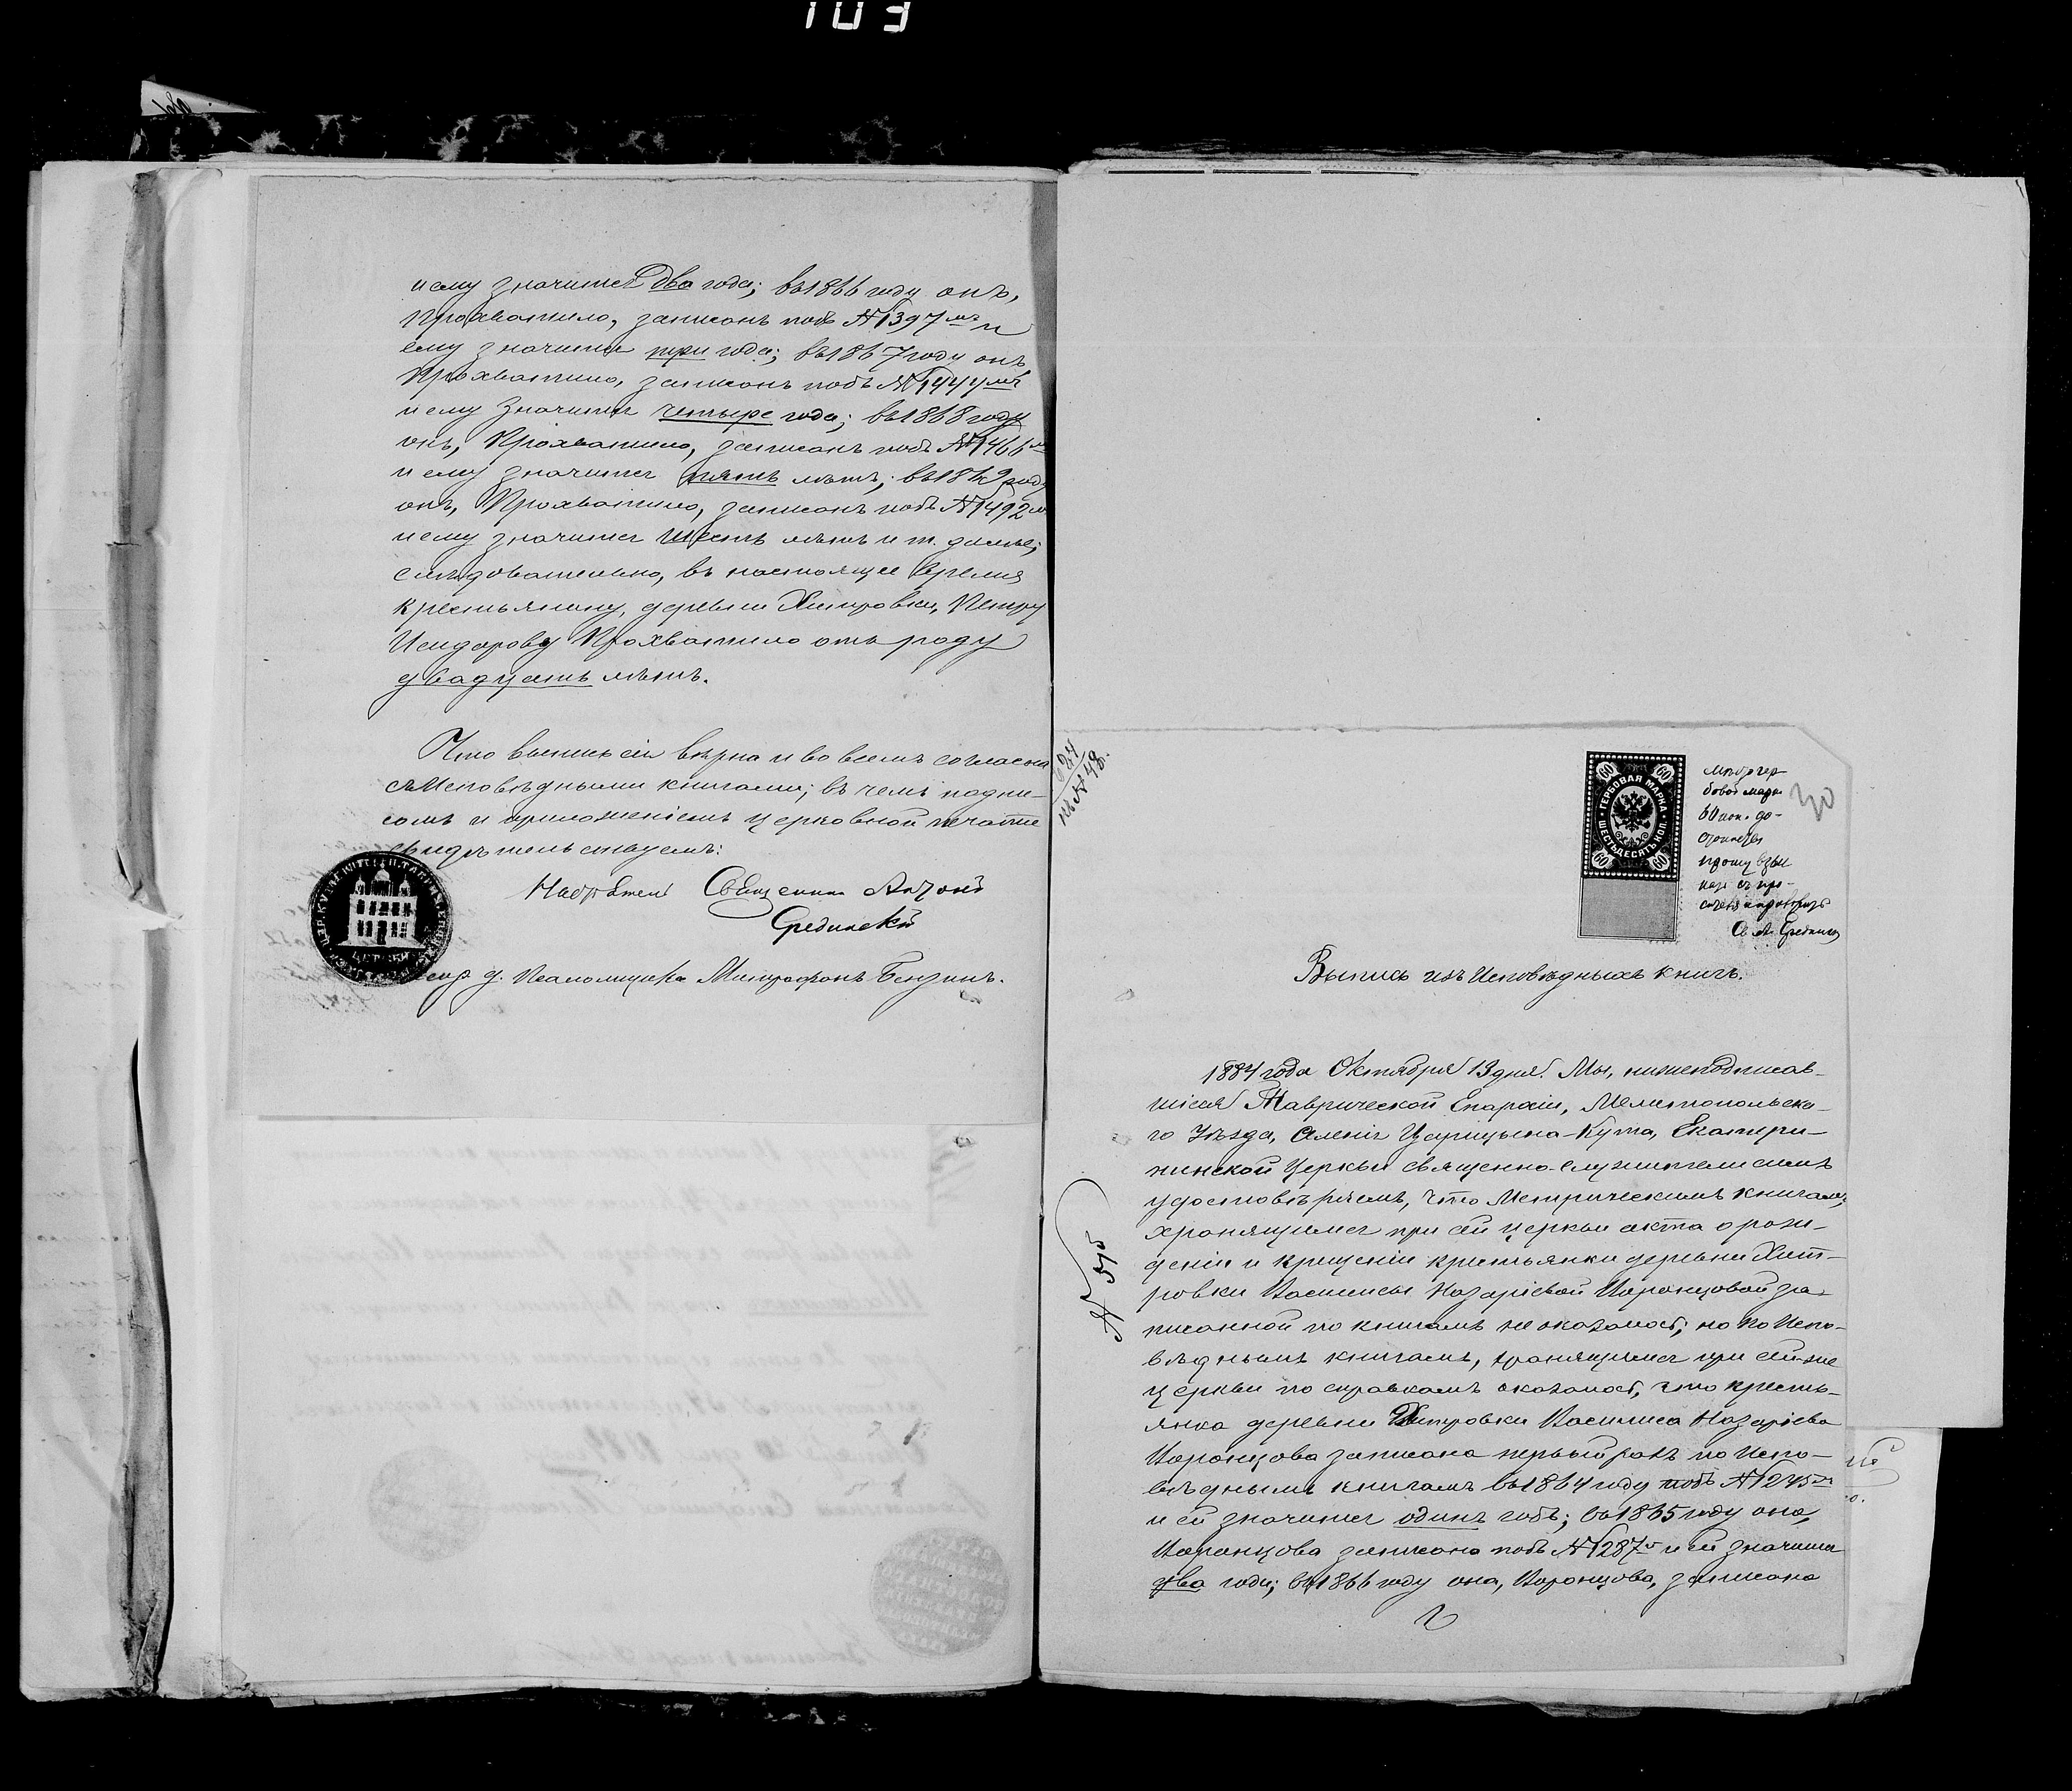 103
и ему значится два года; въ 1866 году онъ,
Прохватило, записанъ подъ №1397мъ и
ему значится три года; въ 1867 году онъ
Прохватило, записанъ подъ №1444мъ
и ему значится четыре года; въ 1868 году
онъ, Прохватило, записанъ подъ №1466
и ему значится пять лѣтъ; въ 1869 году
онъ, Прохватило, записанъ подъ №1492
и ему значится шесть лѣтъ и т. далѣе;
слѣдовательно, въ настоящее время
крестьянину, деревни Хитровки, Петру
Исидорову Прохватило отъ роду
двадцать лѣтъ.
Что выпись сія вѣрна и во всемъ согласна
съ Исповѣдными книгами; въ чемъ подпи-
сомъ и приложеніемъ церковной печати
свидѣтельствуемъ:
Настоятель Священникъ Антоній
Срединскій
д. Псаломщика Митрофанъ Бензинъ.
къ №48.
60 60
ГЕРБОВАЯ МАРКА
ШЕСТЬДЕСЯТЬ КОП.
60 60
гер-
бовой марки
60 коп. до-
прошу взы-
съ про-
Св. А. Срединскій
30
Выпись изъ Исповѣдныхъ книгъ.
1884 года Октября 13 дня. Мы, нижеподписав-
шіеся Таврической Епархіи, Мелитопольска-
го Уѣзда, селенія Царицына-Кута, Екатери-
нинской Церкви священно-служители симъ
удостовѣряемъ, что Метрическимъ книгамъ,
хранящимся при сей церкви акта о рож-
деніи и крещеніи крестьянки деревни Хит-
ровки Василисы Назаріевой Воронцовой за-
писанной по книгамъ не оказалось; но по Испо-
вѣднымъ книгамъ, хранящимся при сей-же
церкви по справкамъ оказалось, что кресть-
янка деревни Хитровки Василиса Назаріева
Воронцова записана первый разъ по Испо-
вѣднымъ книгамъ въ 1864 году подъ №1245мъ
и ей значится одинъ годъ; въ 1865 году она,
Воронцова записана подъ №1287 и ей значится
два года; въ 1866 году она, Воронцова, записана
№ 575